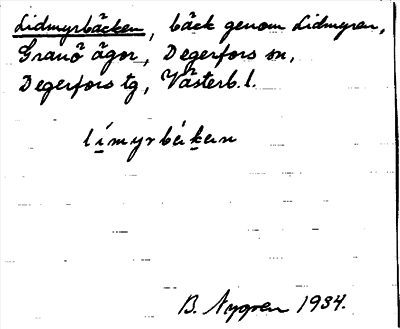 Lidmyrbäcken, bäck genom Lidmyran,
Granö ägor, Degerfors sn,
Degerfors tg, Västerb. l.
límyrbäḱan
B. Nygren 1934.